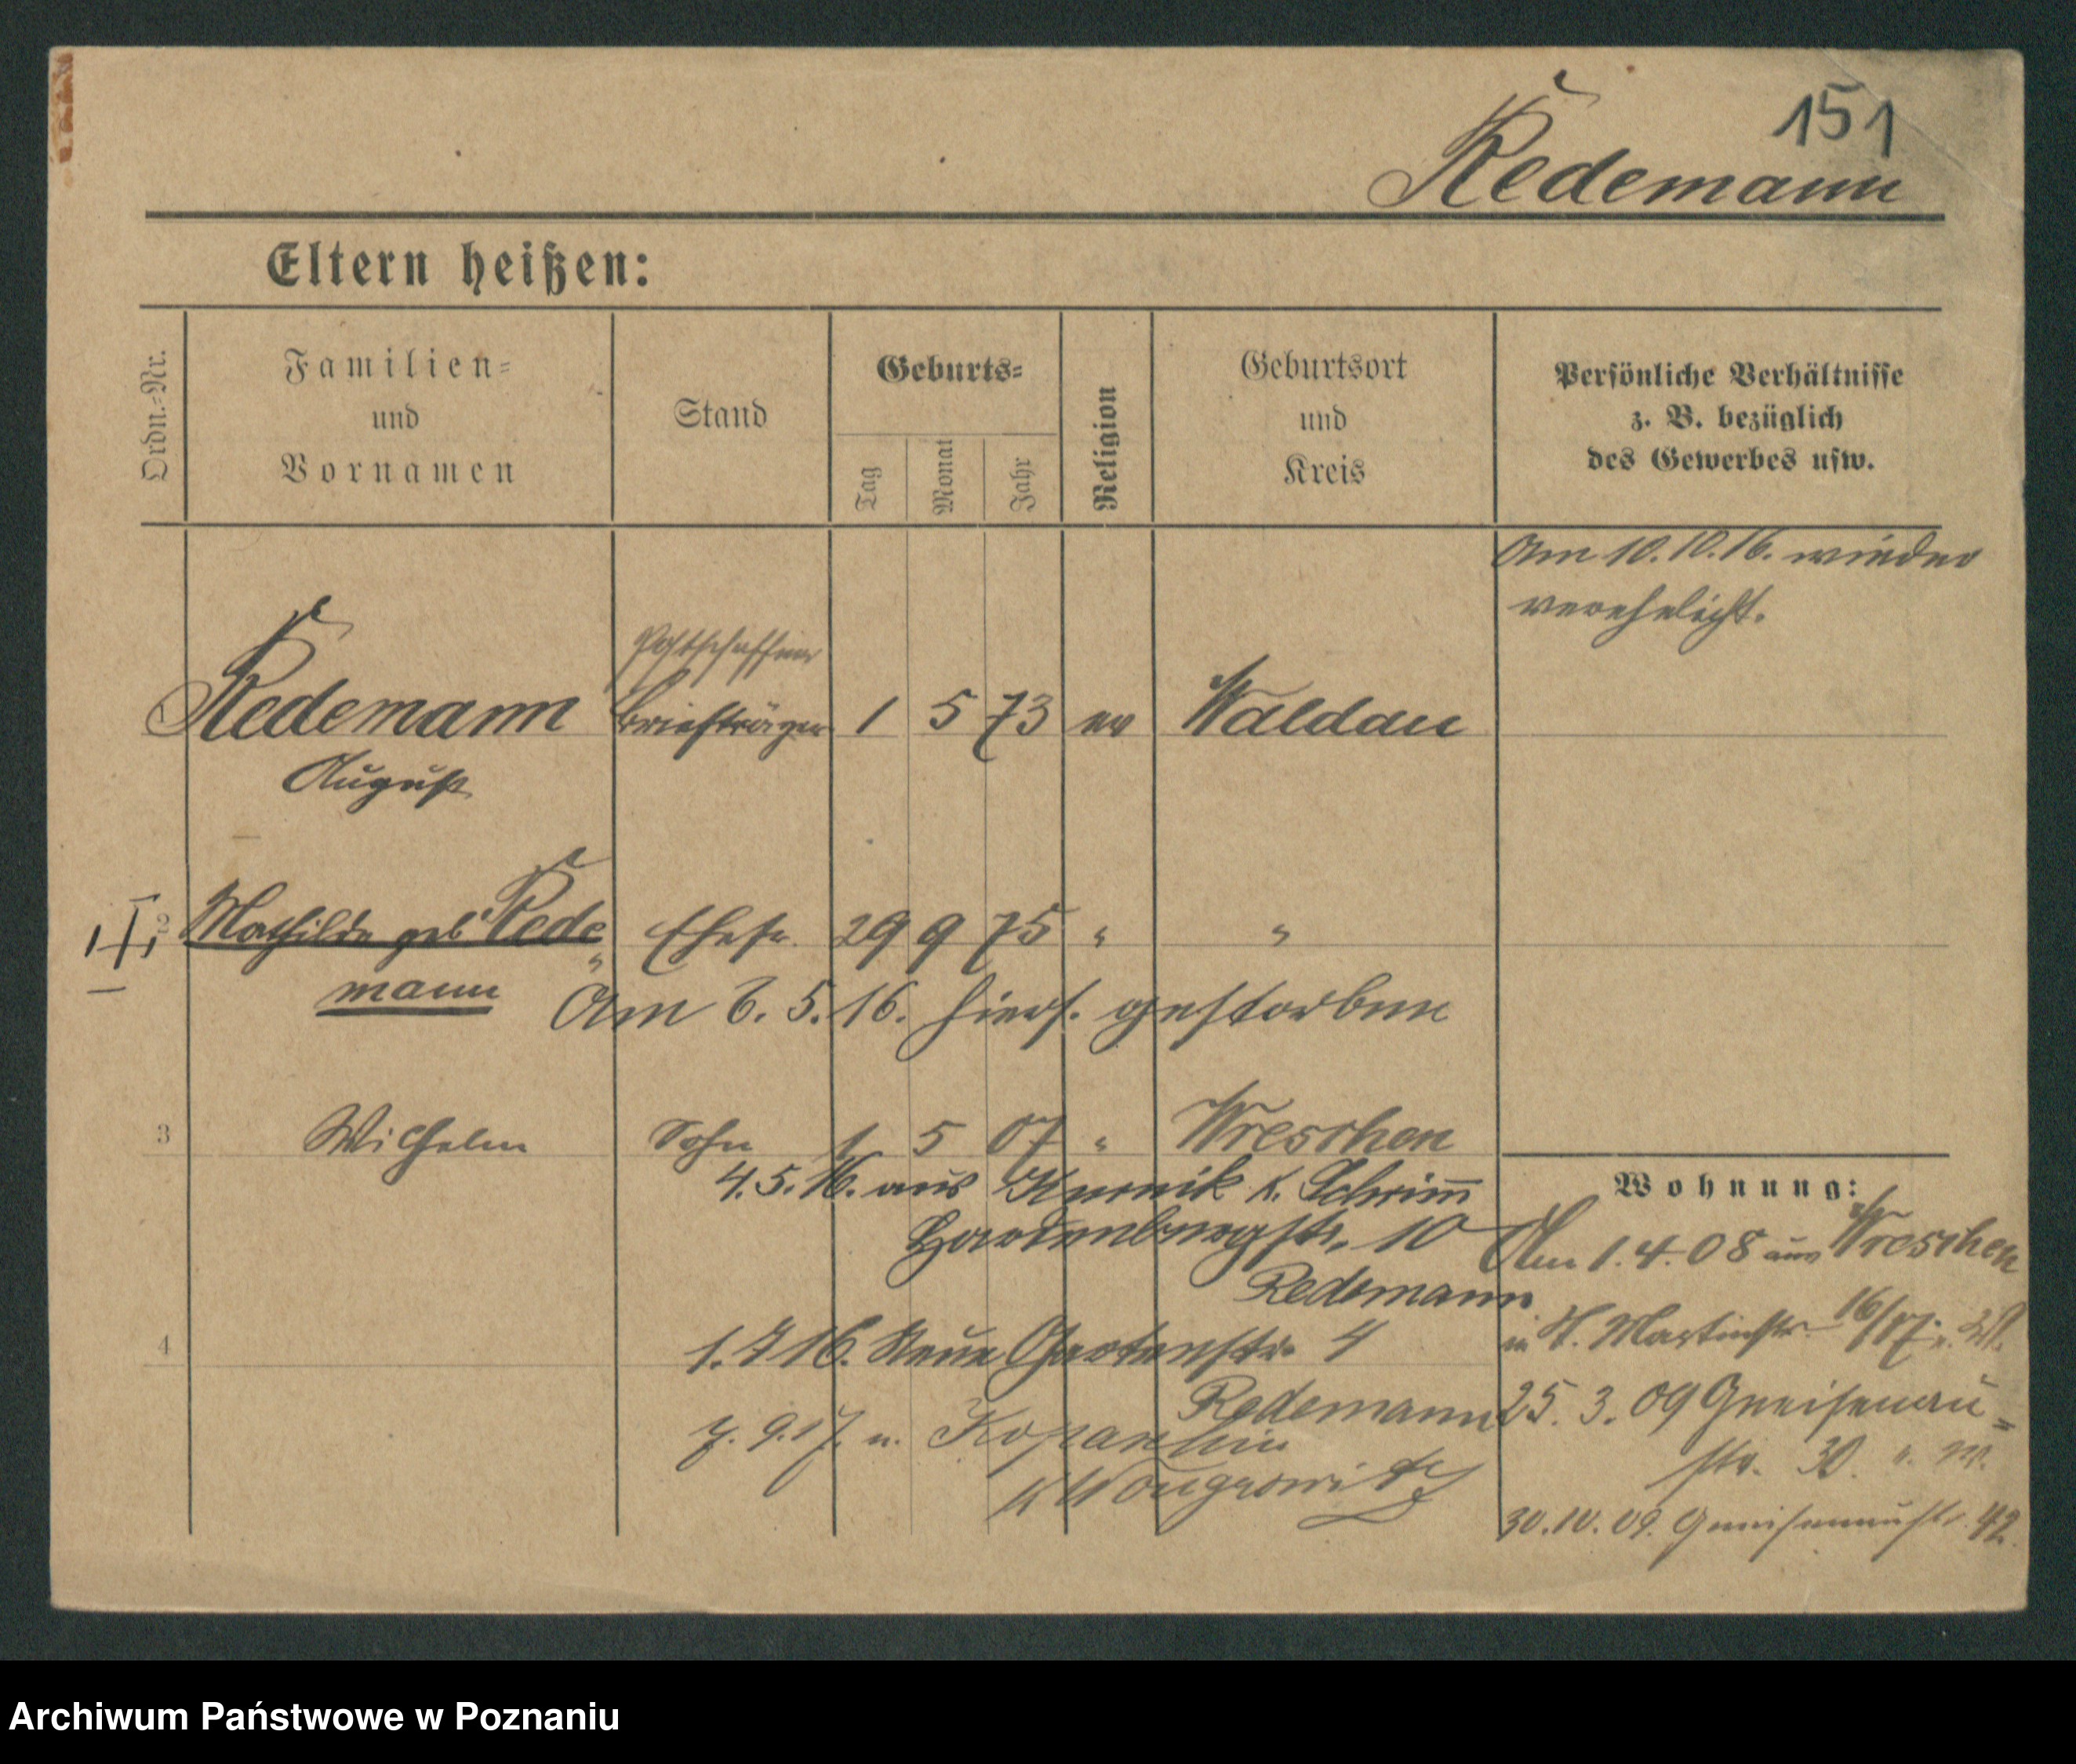 151
Redemann
Eltern heißen:
Ordn.-Nr.
Familien-
und
Vornamen
Stand
Geburts-
Tag
Monat
Jahr
Religion
Geburtsort
und
Kreis
Persönliche Verhältnisse
z. B. bezüglich
des Gewerbes usw.
Am 10.10.16. wieder
verehelicht.
Postschaffner
Redemann Briefträger 1 5 73 ev Waldau
August
2 Mathilde geb Rede Ehefr. 29 9 75 " "
mann
Am 6. 5. 16. hiers. gestorben
3 Wilhelm Sohn 1 5 07 " Wreschen
4. 5. 16. aus Kurnik K. Schrimm
Hardenbergstr. 10
Redemann
4
1. 7 16. Neue Gartenstr. 4
Redemann
7. 9. 17. n.
K Wongrowitz
Wohnung:
Am 1. 4. 08 aus Wreschen
in St. Martinstr. 16/17.
25. 3. 09 Gneisenau=
str. 30.
30. 10. 09. Gneisenaustr. 42.
Archiwum Państwowe w Poznaniu